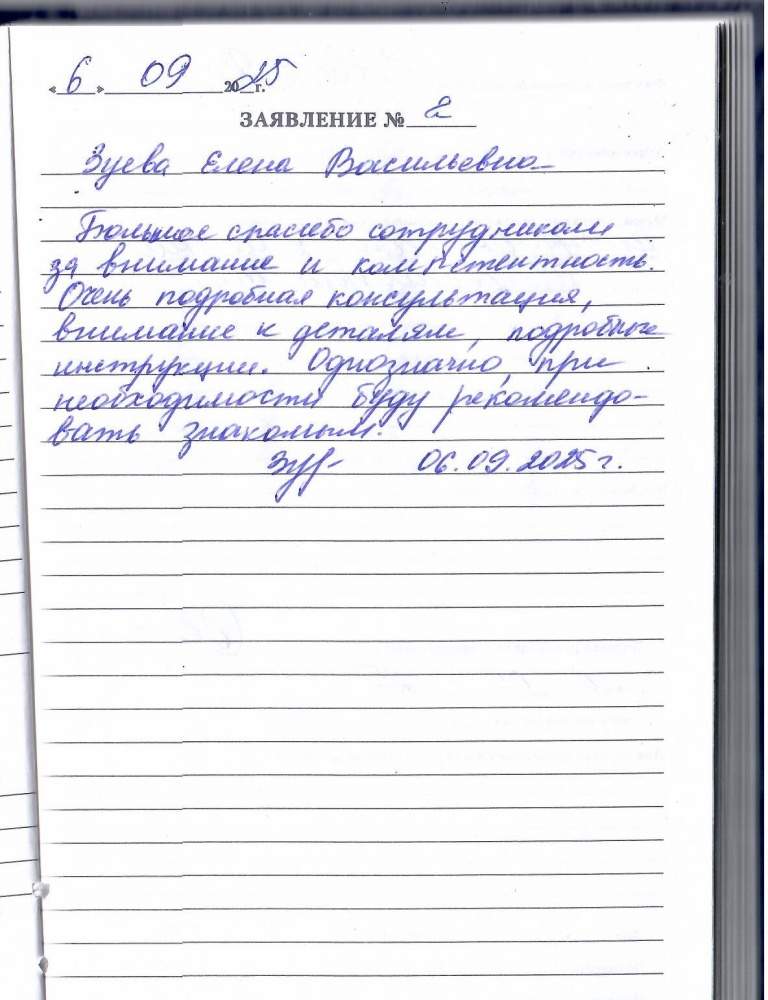 «6» 09 2025 г.
ЗАЯВЛЕНИЕ № 2
Зуева Елена Васильевна
Большое спасибо сотрудникам
за внимание и компетентность.
Очень подробная консультация,
внимание к деталям, подробные
инструкции. Однозначно, при
необходимости буду рекомендо-
вать знакомым.
06.09.2025 г.